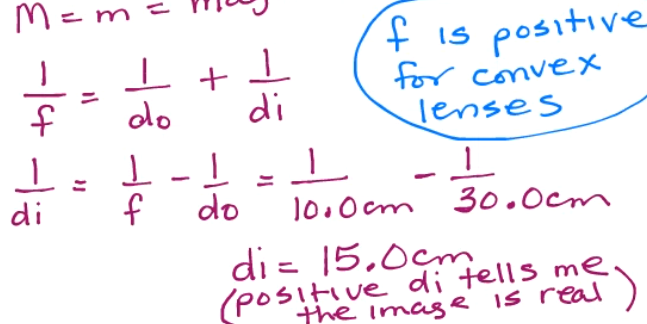 M = m = mag
f is positive
for convex
lenses
1/f = 1/do + 1/di
1/di = 1/f - 1/do = 1/10.0cm - 1/30.0cm
di = 15.0cm
(positive di tells me
the image is real)